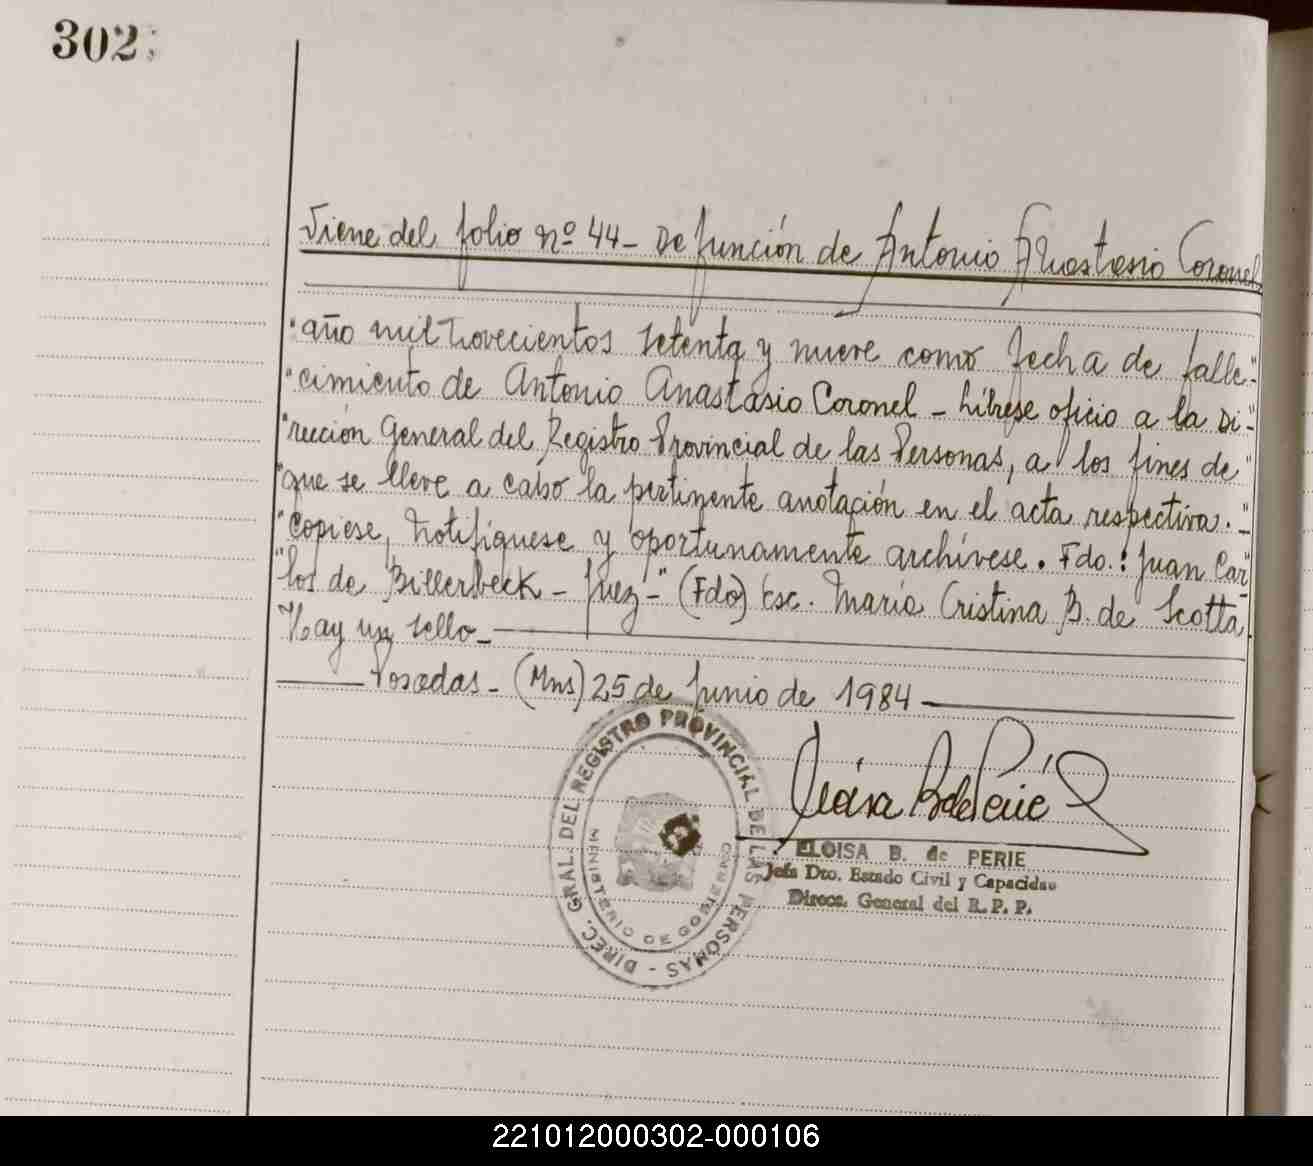 302
Viene del folio nº 44 - Defunción de Antonio Anastasio Coronel
"año mil novecientos setenta y nueve como fecha de falle-"
"cimiento de Antonio Anastasio Coronel - Líbrese oficio a la Di-"
"rección General del Registro Provincial de las Personas, a los fines de"
"que se lleve a cabo la pertinente anotación en el acta respectiva.-"
"Copiese, notifíquese y oportunamente archívese. Fdo.: Juan Car"
"los de Billerbeck - Juez-" (Fdo) Esc. María Cristina B. de Scotta.
Hay un sello-
Posadas - (Mns) 25 de Junio de 1984
DIREC. GRAL. DEL REGISTRO PROVINCIAL DE LAS PERSONAS -
MINISTERIO DE GOBIERNO
ELOISA B. de PERIE
Jefa Dto. Estado Civil y Capacidad
Direcc. General del R. P. P.
221012000302-000106